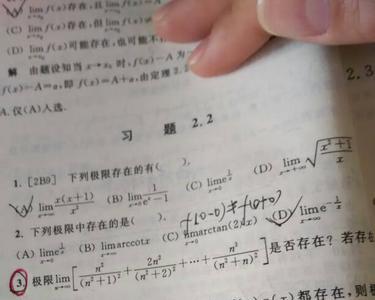 (A) lim f(x)存在,且 lim f(x)=A
x→x₀
(C) lim f(x)存在,但 lim f(x)≠
x→x₀
(D) lim f(x)可能存在,也可能不
x→x₀
解 由题设知当 x→x₀ 时,f(x)-A 为
f(x)-A=α,即 f(x)=A+α,由定理 2.2
A.仅(A)入选.
2.3
习 题 2.2
1. [2B9] 下列极限存在的有( ).
(A) lim x→∞ x(x+1)/x² (B) lim x→0 1/(eˣ-1) (C) lim x→0 e^(1/x) (D) lim x→+∞ √((x²+1)/x)
f(0-0)≠f(0+0)
2. 下列极限中存在的是( ).
(A) lim x→0 e^(1/x) (B) lim x→∞ arccotx (C) lim x→∞ arctan(2)x (D) lim x→∞ e^(-1/x)
3. 极限 lim n→∞ [n²/(n²+1)² + 2n²/(n²+2)² + ⋯ + n³/(n²+n)²] 是否存在? 若存在
都存在,则